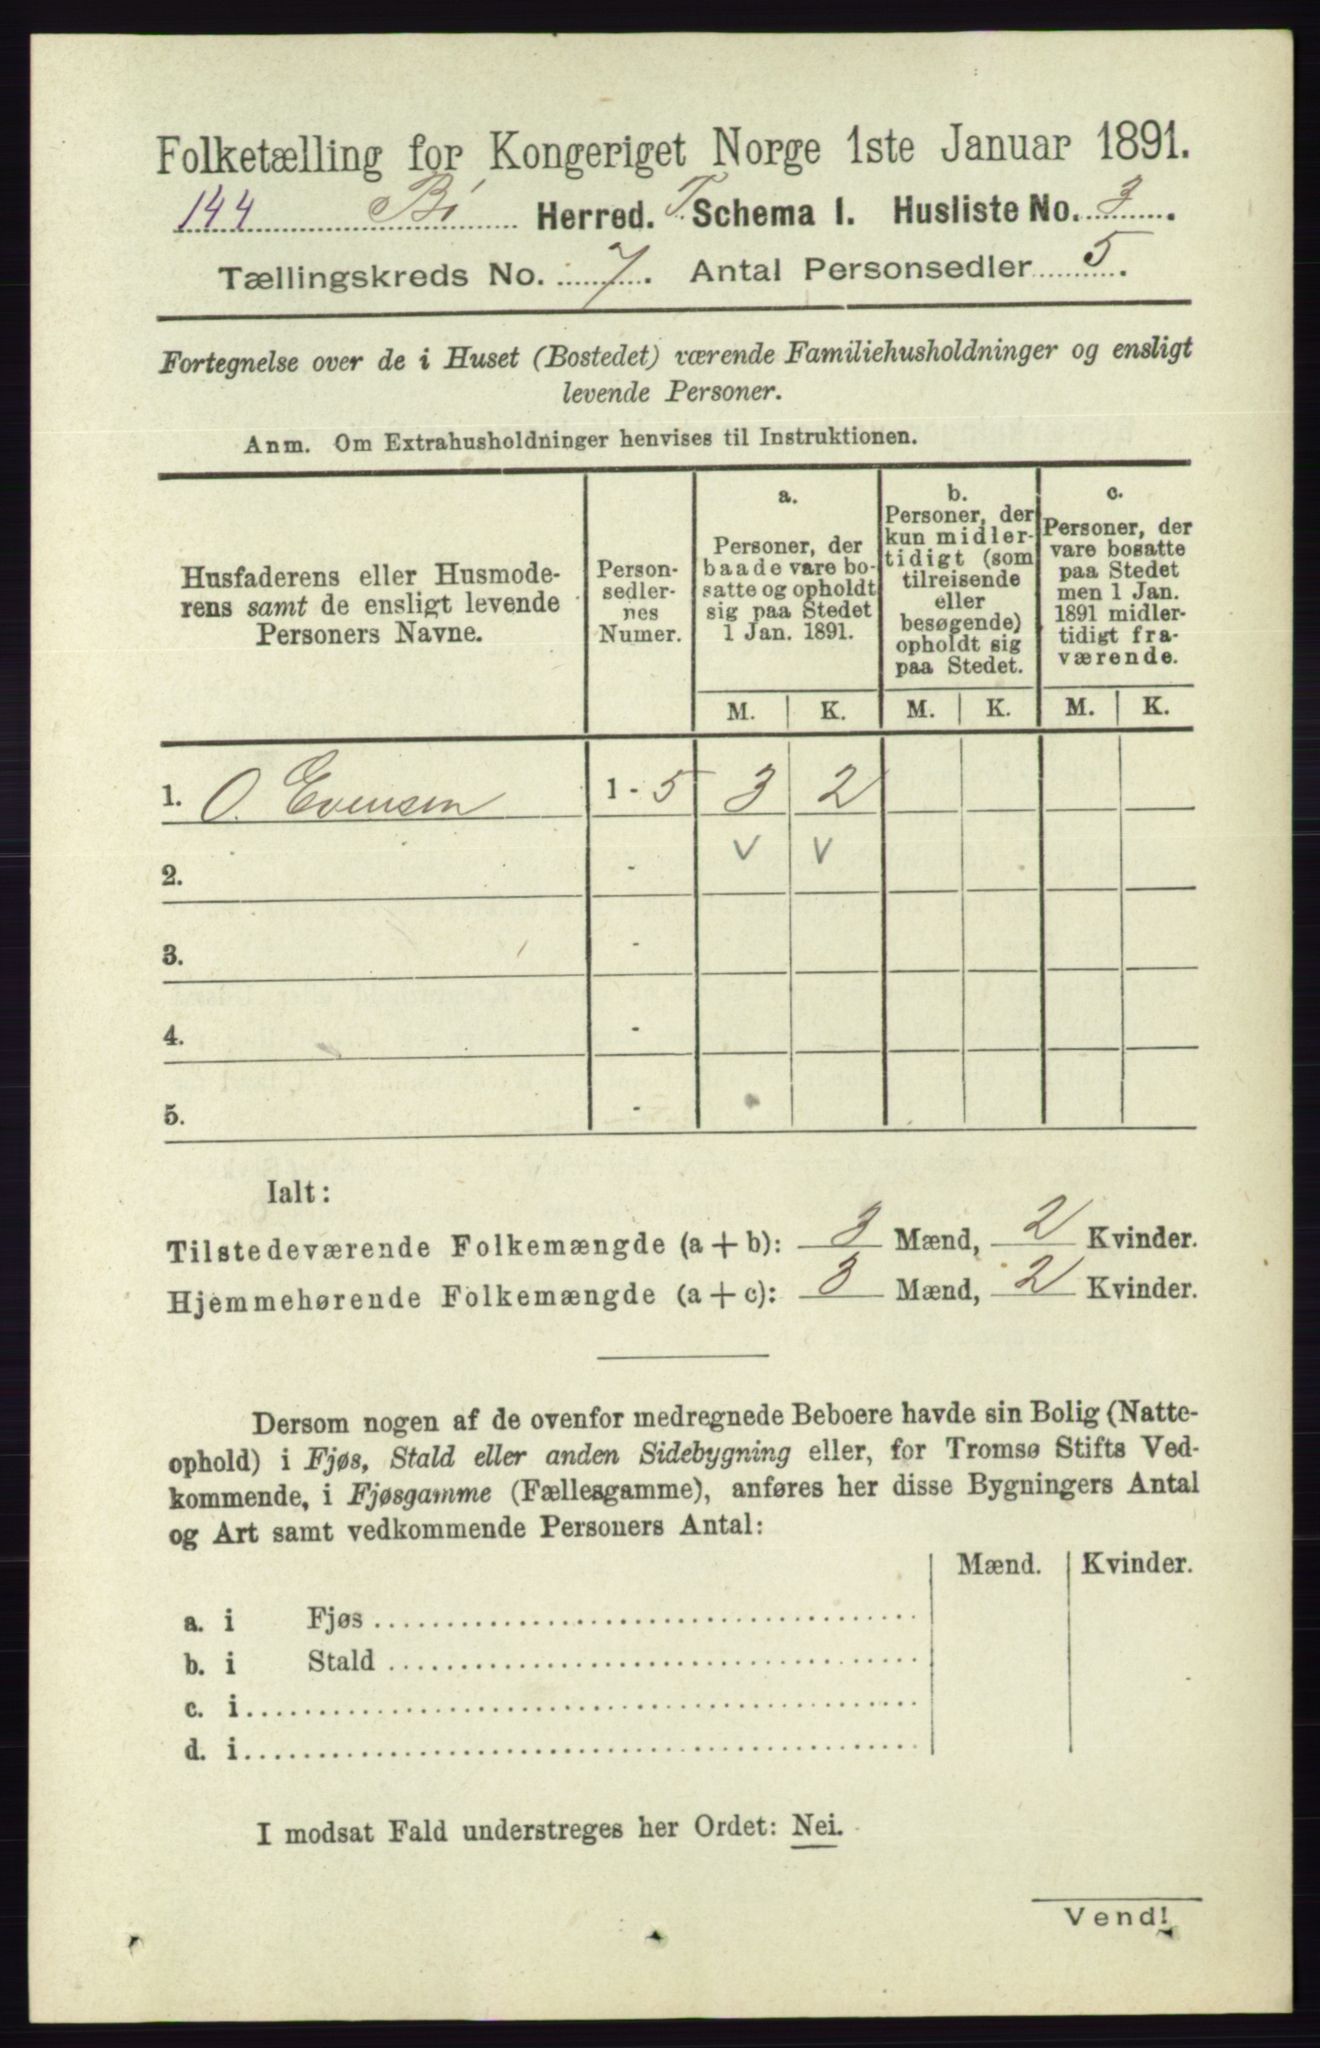 Folketælling for Kongeriget Norge 1ste Januar 1891.
144 Bö Herred. T. Schema I. Husliste No. 3.
Tællingskreds No. 7. Antal Personsedler 5.
Fortegnelse over de i Huset (Bostedet) værende Familiehusholdninger og ensligt
levende Personer.
Anm. Om Extrahusholdninger henvises til Instruktionen.
Husfaderens eller Husmode-
rens samt de ensligt levende
Personers Navne.
Person-
sedler-
nes
Numer.
a.
Personer, der
baade vare bo-
satte og opholdt
sig paa Stedet
1 Jan. 1891.
b.
Personer, der
kun midler-
tidigt (som
tilreisende
eller
besøgende)
opholdt sig
paa Stedet.
c.
Personer, der
vare bosatte
paa Stedet
men 1 Jan.
1891 midler-
tidigt fra-
værende.
M. K. M. K. M. K.
1. O. Evensen 1 - 5 3 2
2. - v v
3. -
4. -
5. -
Ialt:
Tilstedeværende Folkemængde (a + b): 3 Mænd, 2 Kvinder.
Hjemmehørende Folkemængde (a + c): 3 Mænd, 2 Kvinder.
Dersom nogen af de ovenfor medregnede Beboere havde sin Bolig (Natte-
ophold) i Fjøs, Stald eller anden Sidebygning eller, for Tromsø Stifts Ved-
kommende, i Fjøsgamme (Fællesgamme), anføres her disse Bygningers Antal
og Art samt vedkommende Personers Antal:
Mænd. Kvinder.
a. i Fjøs
b. i Stald
c. i
d. i
I modsat Fald understreges her Ordet: Nei.
Vend!